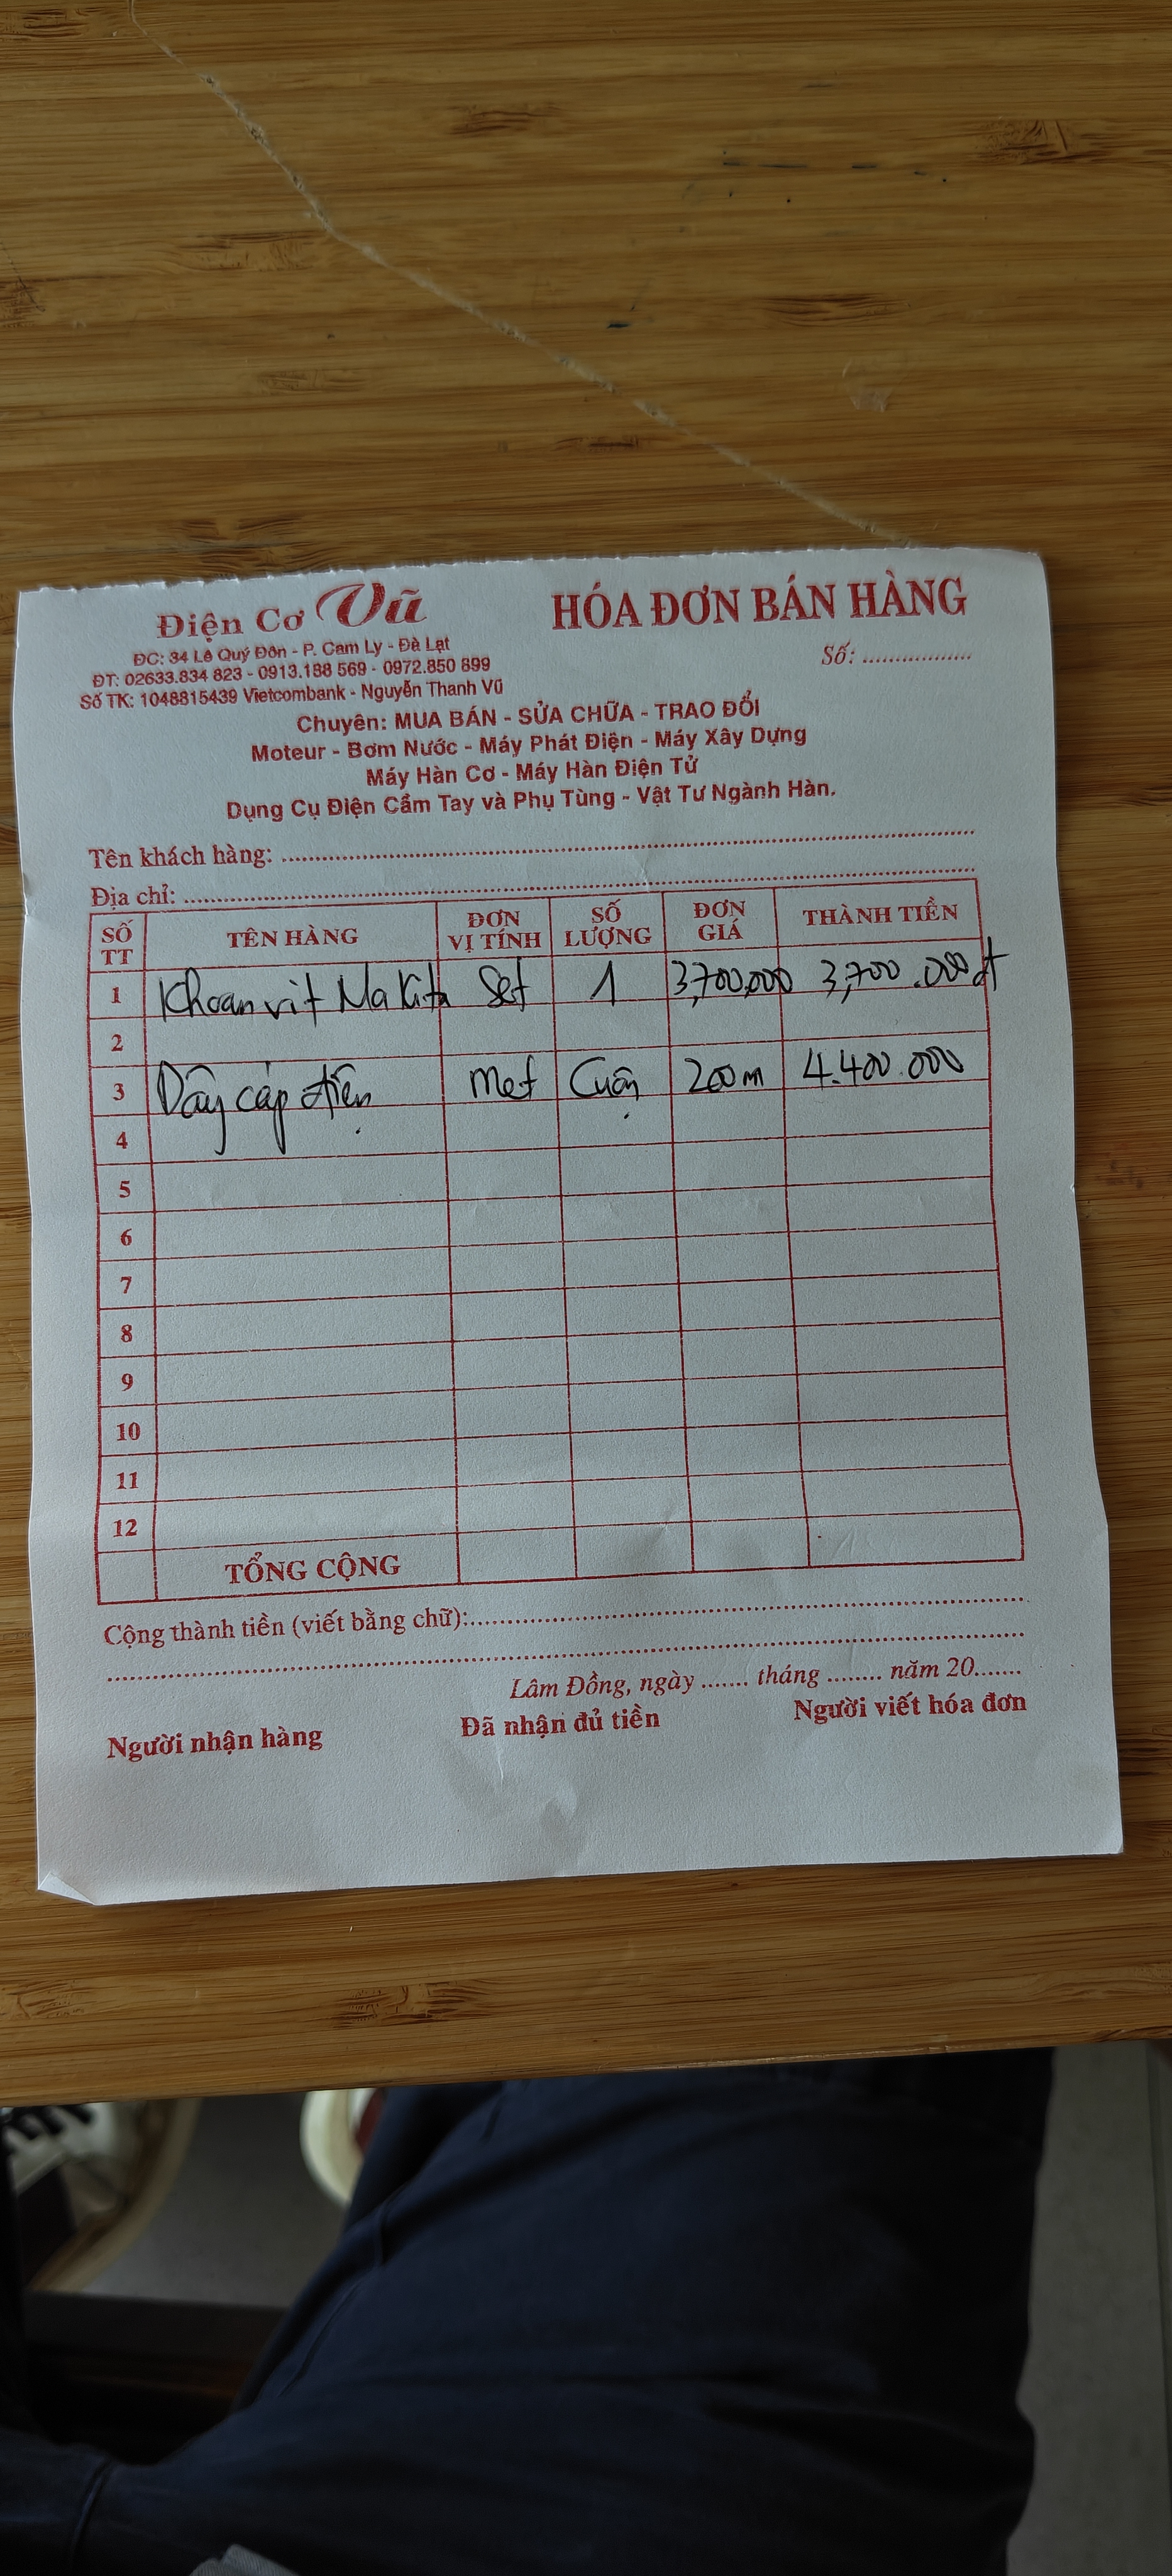 Điện Cơ Vũ
HÓA ĐƠN BÁN HÀNG
ĐC: 34 Lê Quý Đôn - P. Cam Ly - Đà Lạt
Số: .................
ĐT: 02633.834 823 - 0913.188 569 - 0972.850 899
Số TK: 1048815439 Vietcombank - Nguyễn Thanh Vũ
Chuyên: MUA BÁN - SỬA CHỮA - TRAO ĐỔI
Moteur - Bơm Nước - Máy Phát Điện - Máy Xây Dựng
Máy Hàn Cơ - Máy Hàn Điện Tử
Dụng Cụ Điện Cầm Tay và Phụ Tùng - Vật Tư Ngành Hàn.
Tên khách hàng: ........................
Địa chỉ: ........................
SỐ TT TÊN HÀNG ĐƠN VỊ TÍNH SỐ LƯỢNG ĐƠN GIÁ THÀNH TIỀN
1 Khoan vit Ma Kita Set 1 3,700,000 3,700.000đ
2
3 Dây cáp điện met Cuộn 200m 4.400.000
4
5
6
7
8
9
10
11
12
TỔNG CỘNG
Cộng thành tiền (viết bằng chữ):........................
........................
Lâm Đồng, ngày ....... tháng ........ năm 20.......
Người nhận hàng Đã nhận đủ tiền Người viết hóa đơn